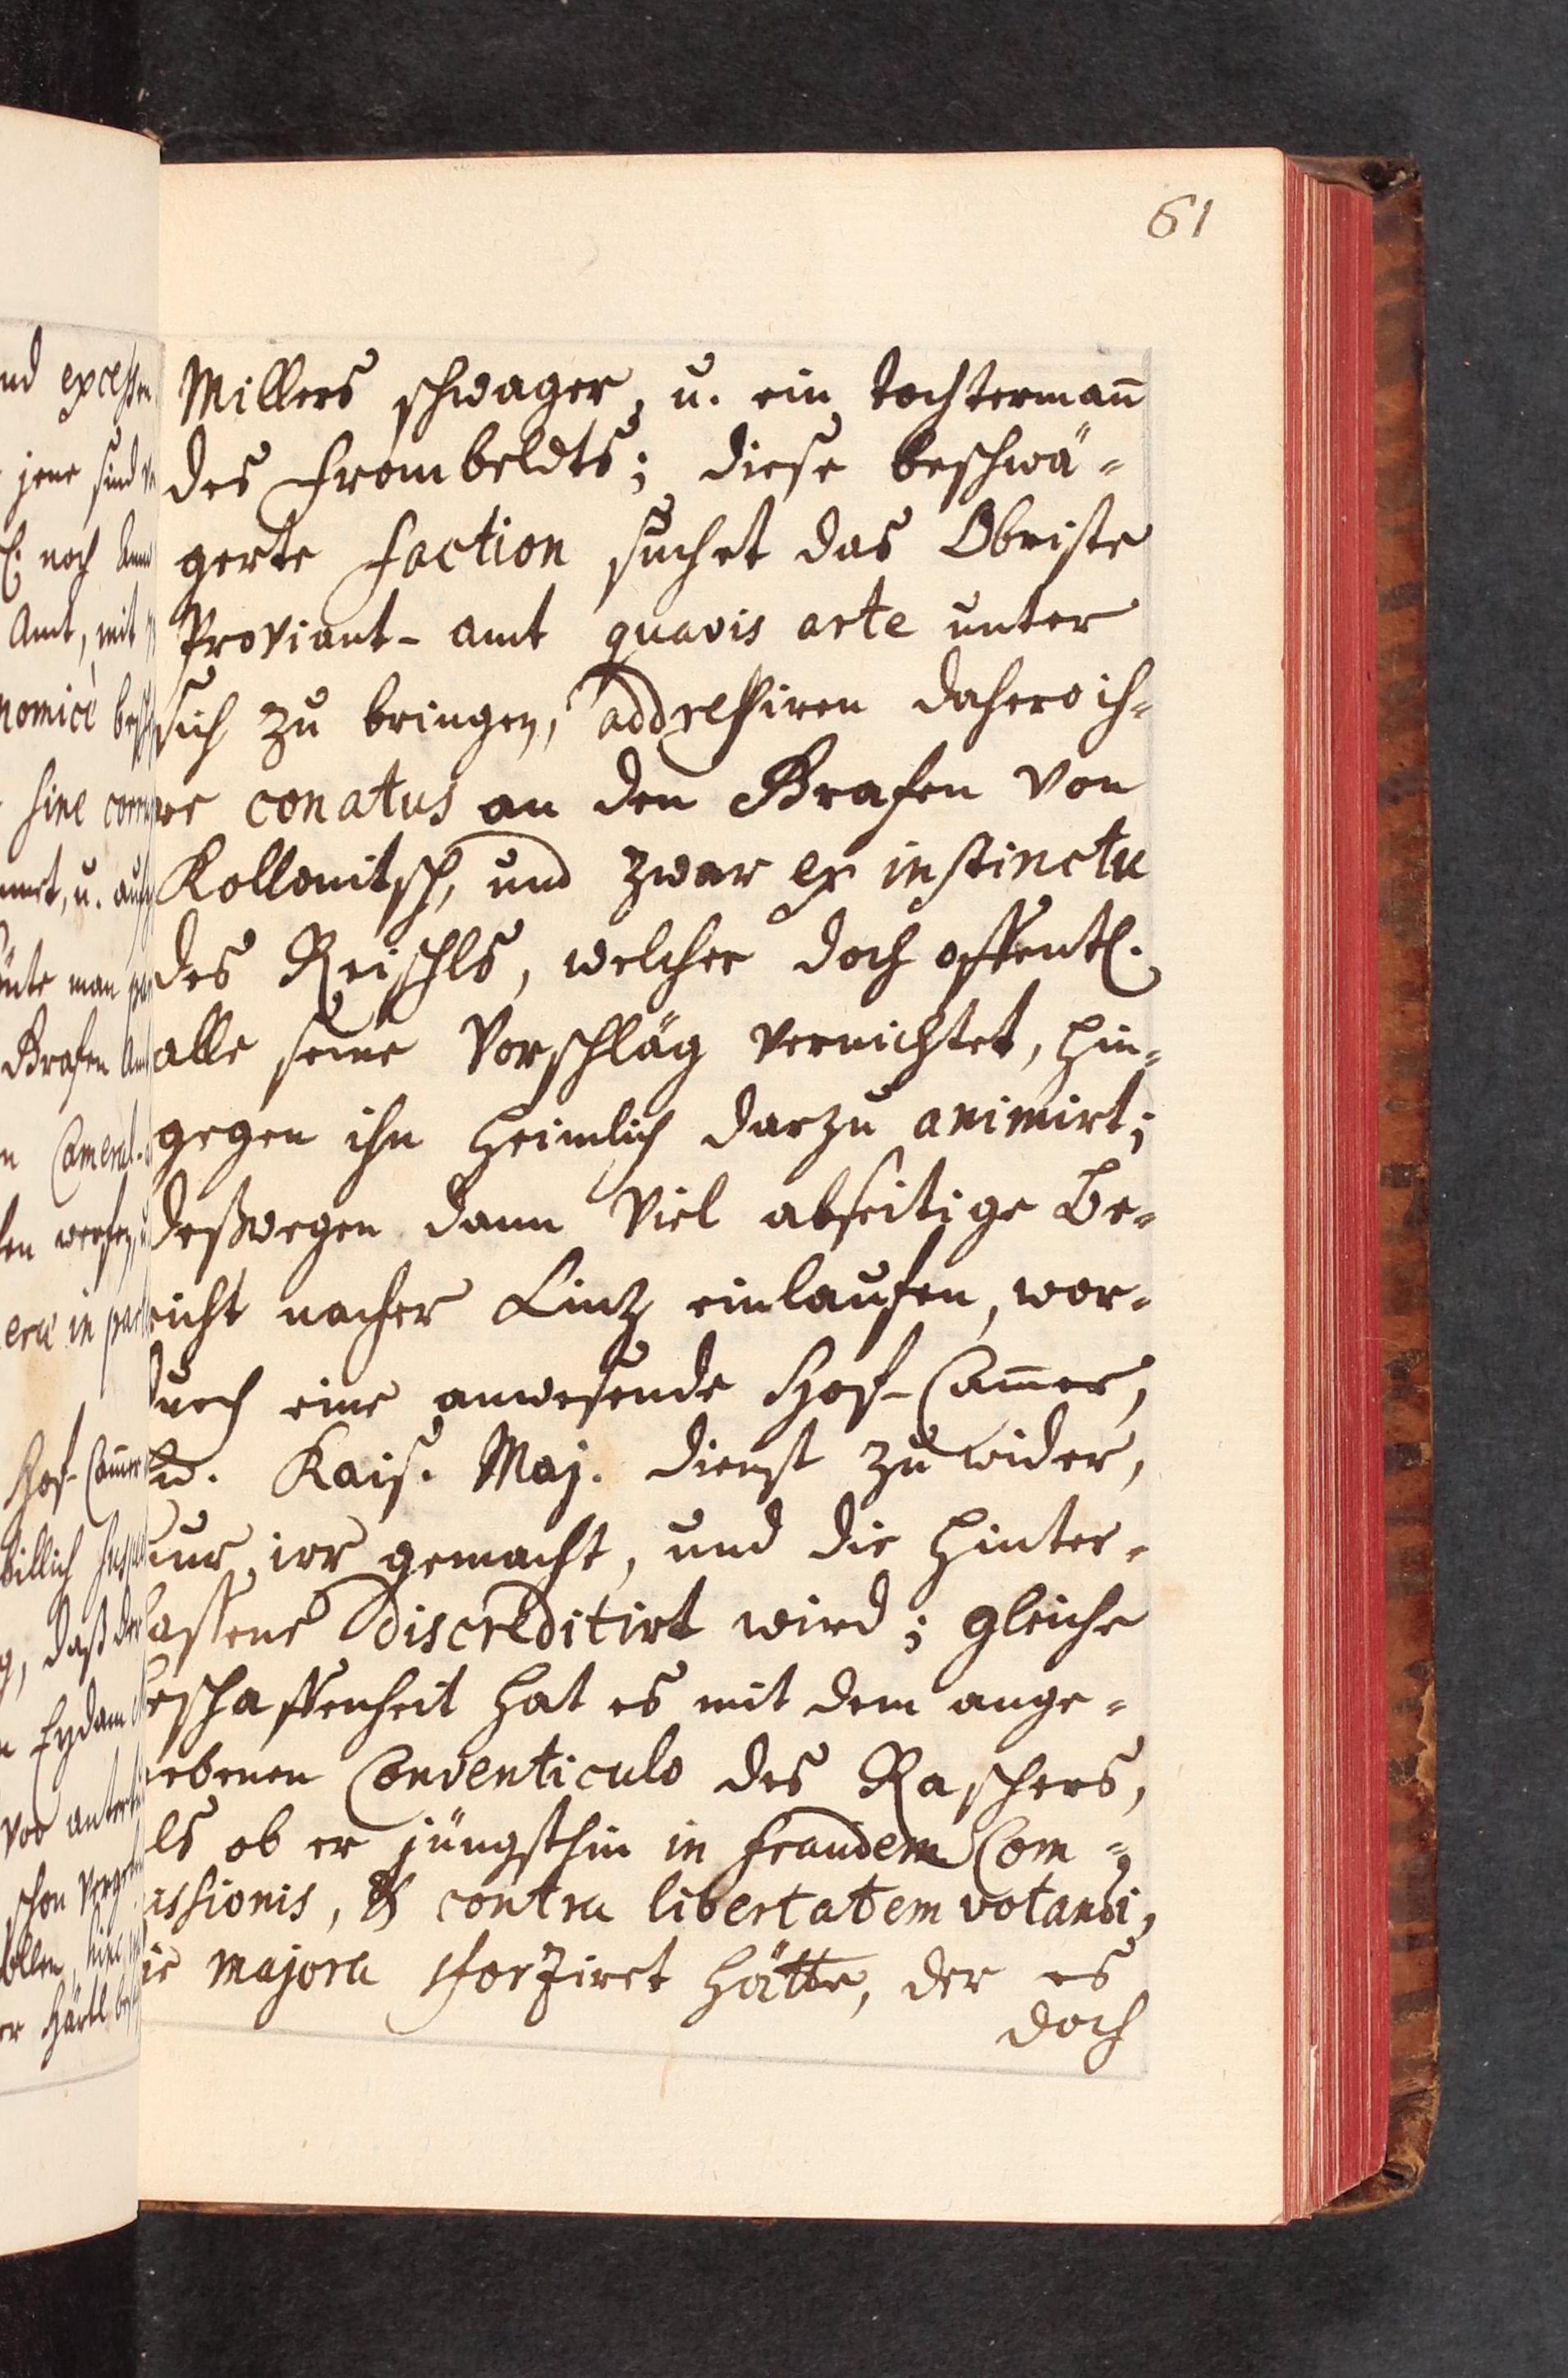 61
Millers schwager, u. ein tochtermañ
des Frombeldts; diese beschwä=
gerte faction suchet das Obriste
Proviant-amt quavis arte unter
sich zu bringen, addressiren dahero ih=
re conatus an den Grafen von
Kollonitsch, und zwar ex instinctu
des Reischls, welcher doch offentl.
alle seine Vorschläg vernichtet, hin=
gegen ihn heimlich darzu animirt;
deßwegen dann viel abseitige Be=
richt nacher Linz einlaufen, wor=
durch eine anwesende Hof-Cam̃er,
Kais. Maj. dienst zu wider,
nur irr gemacht, und die hinter=
lassene discreditirt wird; gleiche
beschaffenheit hat es mit dem ange=
gebenen Conventiculo des Raschers,
als ob er jüngsthin in fraudem Com=
missionis, & contra libertatem votandi,
die majora sforziret hätte, der es
doch
nd excessen
jene sind
noch
Amt, mit
nomicè
sine
u.
man
Grafen
Cameral-
werfen,
in
Hof-Cam̃er
billich
daß der
Eydam
vor
schon